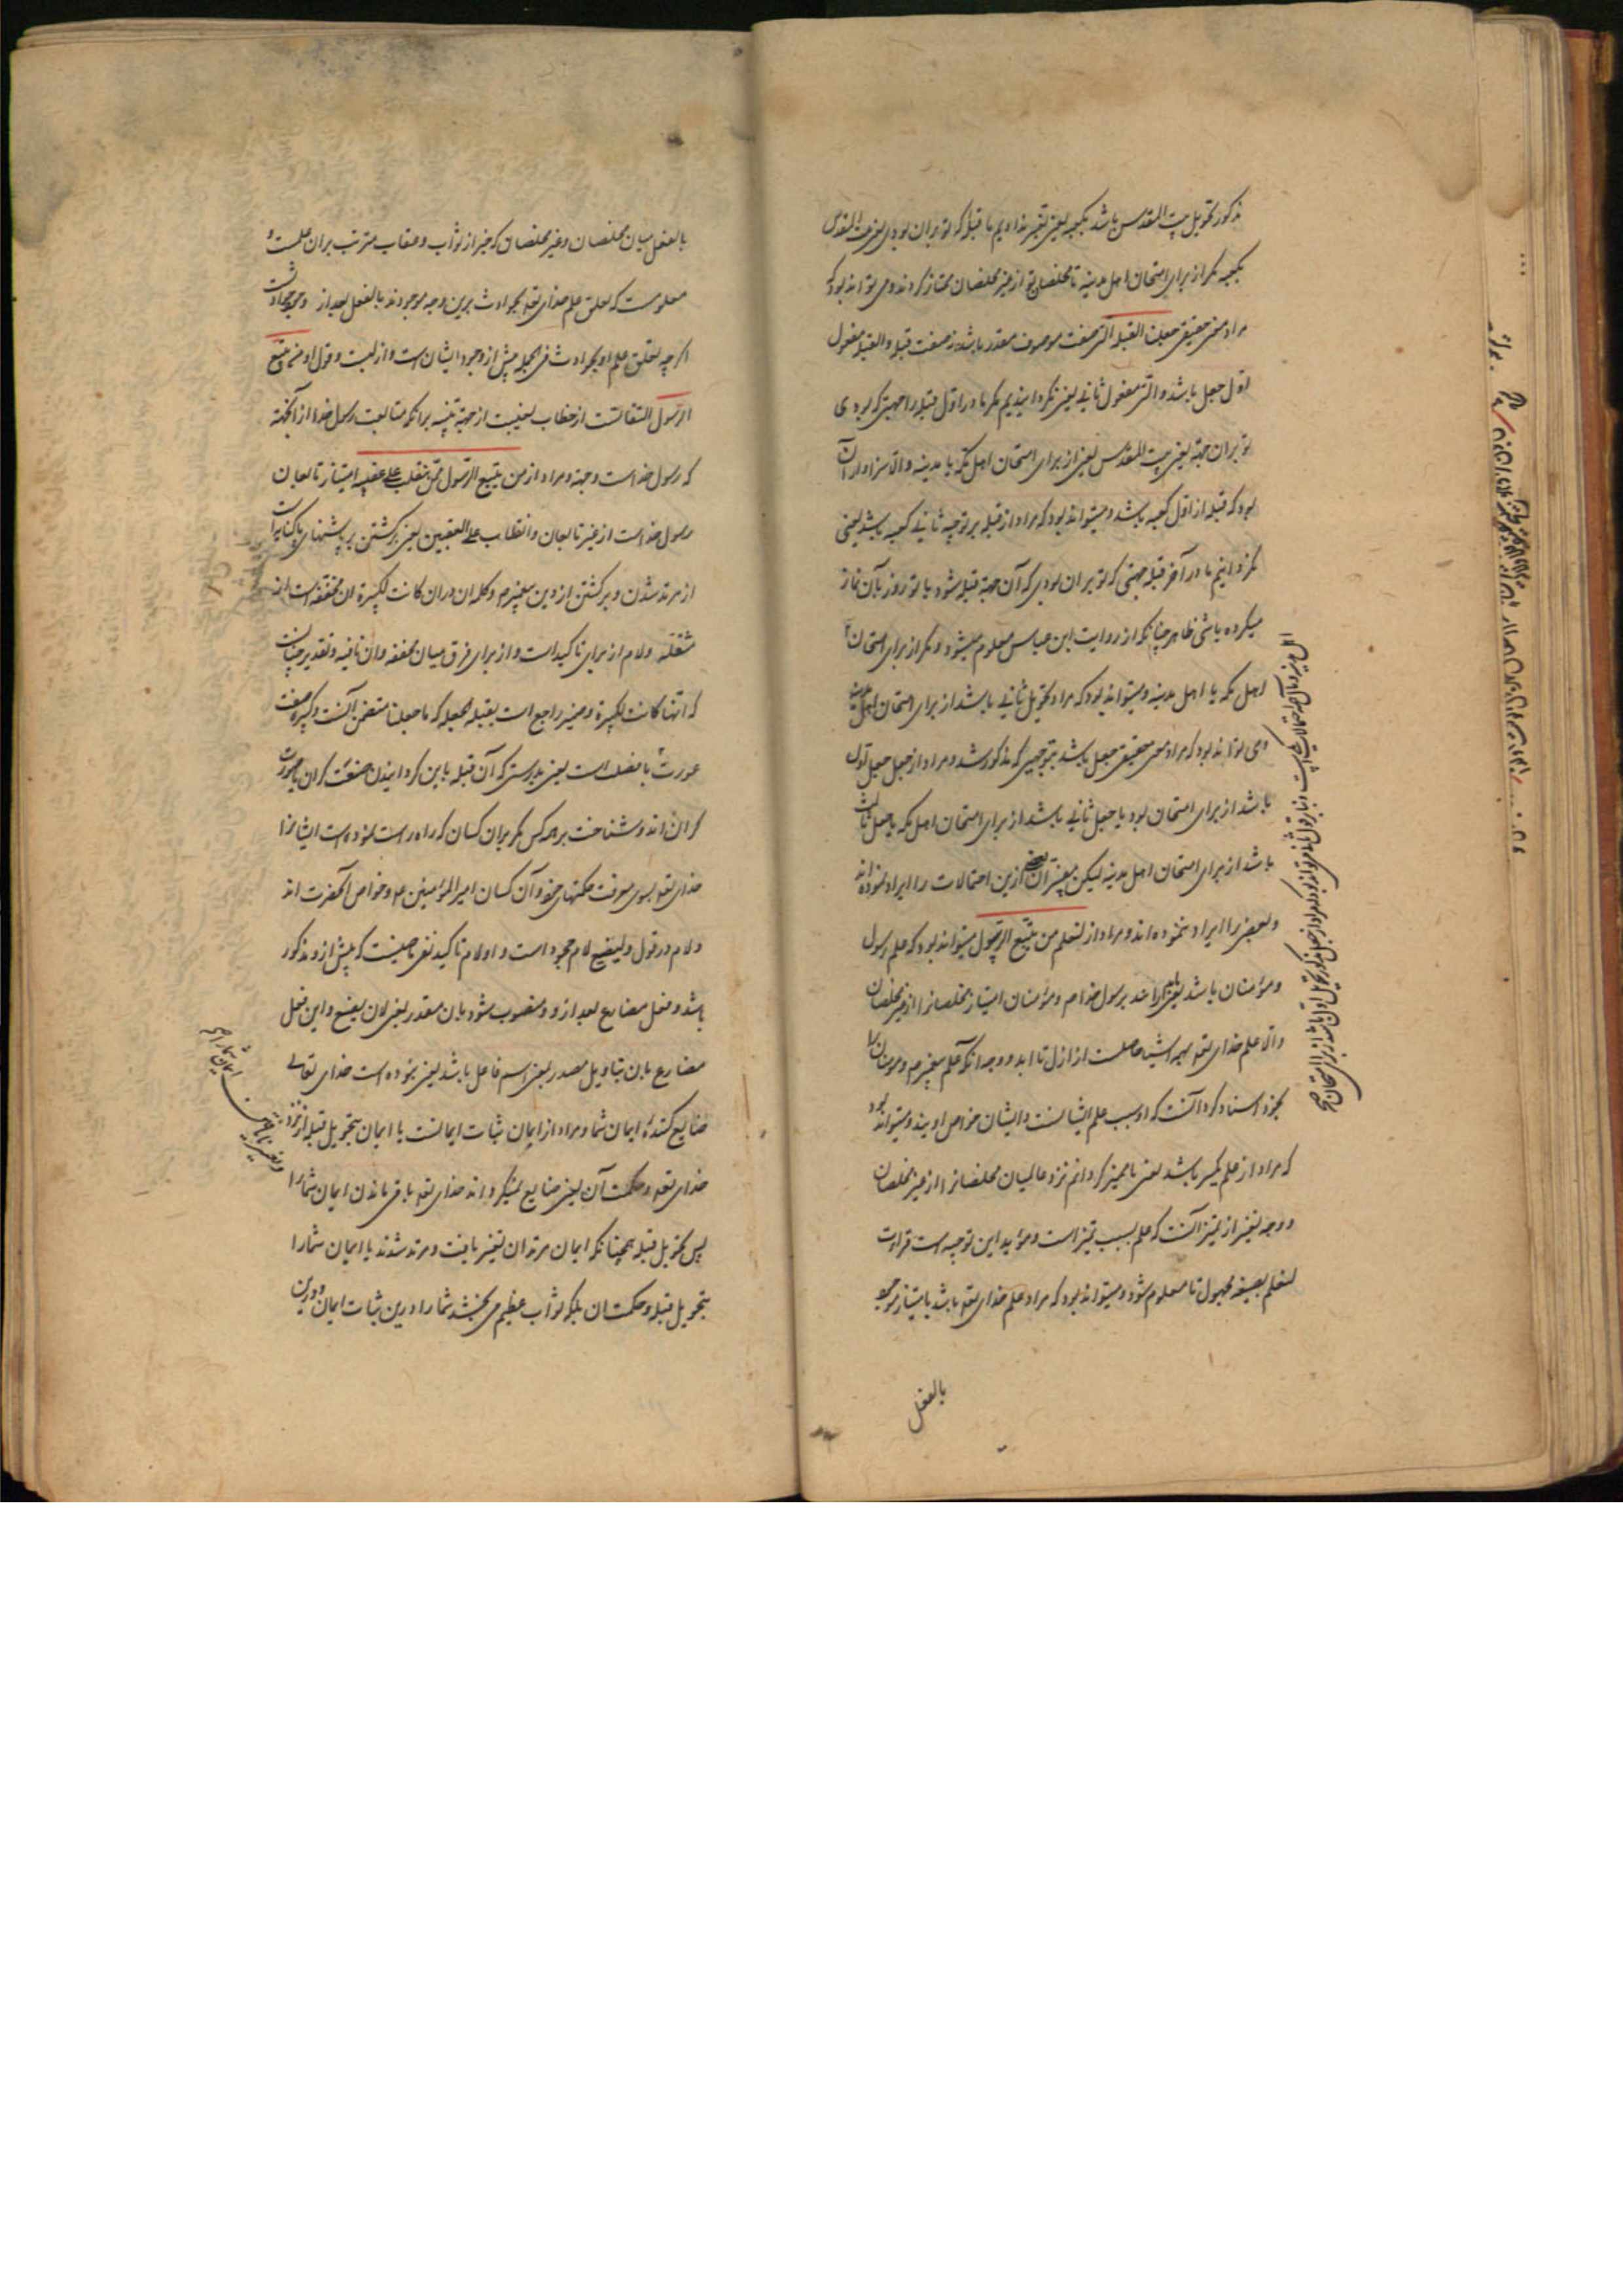 مذکور تحویل بیت المقدس باشد بکعبه یعنی تغییر ندادیم ما قبلهٔ که تو بران بودی یعنی بیت المقدس
بکعبه مکر از برای امتحان اهل مدینه تا مخلصان تو از غیر مخلصان ممتاز کردند و می تواند بود که
مراد معنی حقیقی جعلنا القبلة التی صفت موصوف مقدر باشد نه صفت قبله و القبله مفعول
اول جعل باشد و التی مفعول ثانی یعنی نکردانیدیم مکر ما در اول قبله را جهتی که بودی
تو بران جهة یعنی بیت المقدس یعنی از برای امتحان اهل مکه یا مدینه و الا سزاوار آن
بود که قبله از اول کعبه باشد و میتواند بود که مراد از قبله بر توجیه ثانی کعبه باشد یعنی
نکردانیم ما در آخر قبله جهتی که تو بران بودی که آن جهة قبله شود با تو روز بآن نماز
میکرده باشی ظاهر چنانکه از روایت ابن عباس معلوم میشود و مکر از برای امتحان
اهل مکه یا اهل مدینه و میتواند بود که مراد تحویل ثانی باشد از برای امتحان اهل مدینه
و می تواند بود که مراد معنی حقیقی جعل باشد بتوجیهی که مذکور شد و مراد از جعل جعل اول
باشد از برای امتحان بود یا جعل ثانی باشد از برای امتحان اهل مکه یا جعل ثالث
باشد از برای امتحان اهل مدینه لیکن مفسران بعضی ازین احتمالات را ایراد نموده اند
و بعضی را ایراد ننموده اند و مراد از لنعلم من یتبع الرسول میتواند بود که علم رسول
و مؤمنان باشد یعنی تا بداند رسول خدا ص و مؤمنان امتیاز مخلصانرا از غیر مخلصان
و الا علم خدای تعم بهمه اشیا حاصلست از ازل تا ابد و وجه آنکه علم پیغمبر ص و مومنان را
بخود اسناد کرد آنست که او سبب علم ایشانست و ایشان خواص اویند و میتواند بود
که مراد از علم تمیز باشد یعنی تا ممیز کردانم نزد عالمیان مخلصانرا از غیر مخلصان
و وجه تعبیر از تمیز آنست که علم سبب تمیز است و مؤید این توجیه است قراءت
لنعلم بصیغه مجهول تا معلوم شود و میتواند بود که مراد علم خدای تعم باشد بامتیاز موجود
بالفعل
بالفعل میان مخلصان و غیر مخلصان که جزا از ثواب و عقاب مترتب بران علمست و
معلومست که تعلق علم خدای تعم بحوادث برین وجه موجودند بالفعل بعد از وجود حوادثست
اکر چه تعلق علم او بحوادث فی الجمله پیش از وجود ایشان است و ازلیت و قول او من یتبع
الرسول التفاتست از خطاب بغیبت از جهة تنبیه برانکه متابعت رسول خدا از آنجهة
که رسول خداست وجهة و مراد از من یتبع الرسول ممن ینقلب علی عقبیه امتیاز تابعان
رسول خداست از غیر تابعان و انقلاب علی العقبین یعنی برکشتن بر پاشنهای پا کنایت است
از مرتد شدن و برکشتن از دین پیغمبر ص و کلمه ان در ان کانت لکبیرة ان مخففه است از
مثقله و لام از برای تاکیدست و از برای فرق میان مخففه و ان نافیه و تقدیر چنانست
که انها کانت لکبیرة و ضمیر راجع است بقبله یا بجعله که ما جعلنا متضمن آنست و کبیره صفت
کران اند و شناخت بر همه کس مکر بران کسان که راه راست نموده است ایشانرا
خدای تعم بسوی معرفت حکمتهای خود و آن کسان امیر المؤمنین ع و خواص آنحضرت اند
و لام در قول و لیضیع لام جحود است و او لام تاکید نفی ماضیست که پیش از و مذکور
باشد و فعل مضارع بعد از و منصوب شود بان مقدر یعنی لان یضیع و این فعل
مضارع بان بتاویل مصدر یعنی اسم فاعل باشد یعنی نبوده است خدای تعالی
ضایع کنندهٔ ایمان شما و مراد از ایمان ثبات ایمانست یا ایمان بتحویل قبله از نزد
خدای تعم و حکمت آن یعنی ضایع نمیکرداند خدای تعم باقی ماندن ایمان شما را
پس تحویل قبله همچنانکه ایمان مرتدان تغییر یافت و مرتد شدند یا ایمان شما را
بتحویل قبله و حکمت ان بلکه ثواب عظیم می بخشد شما را درین ثبات ایمان و درین